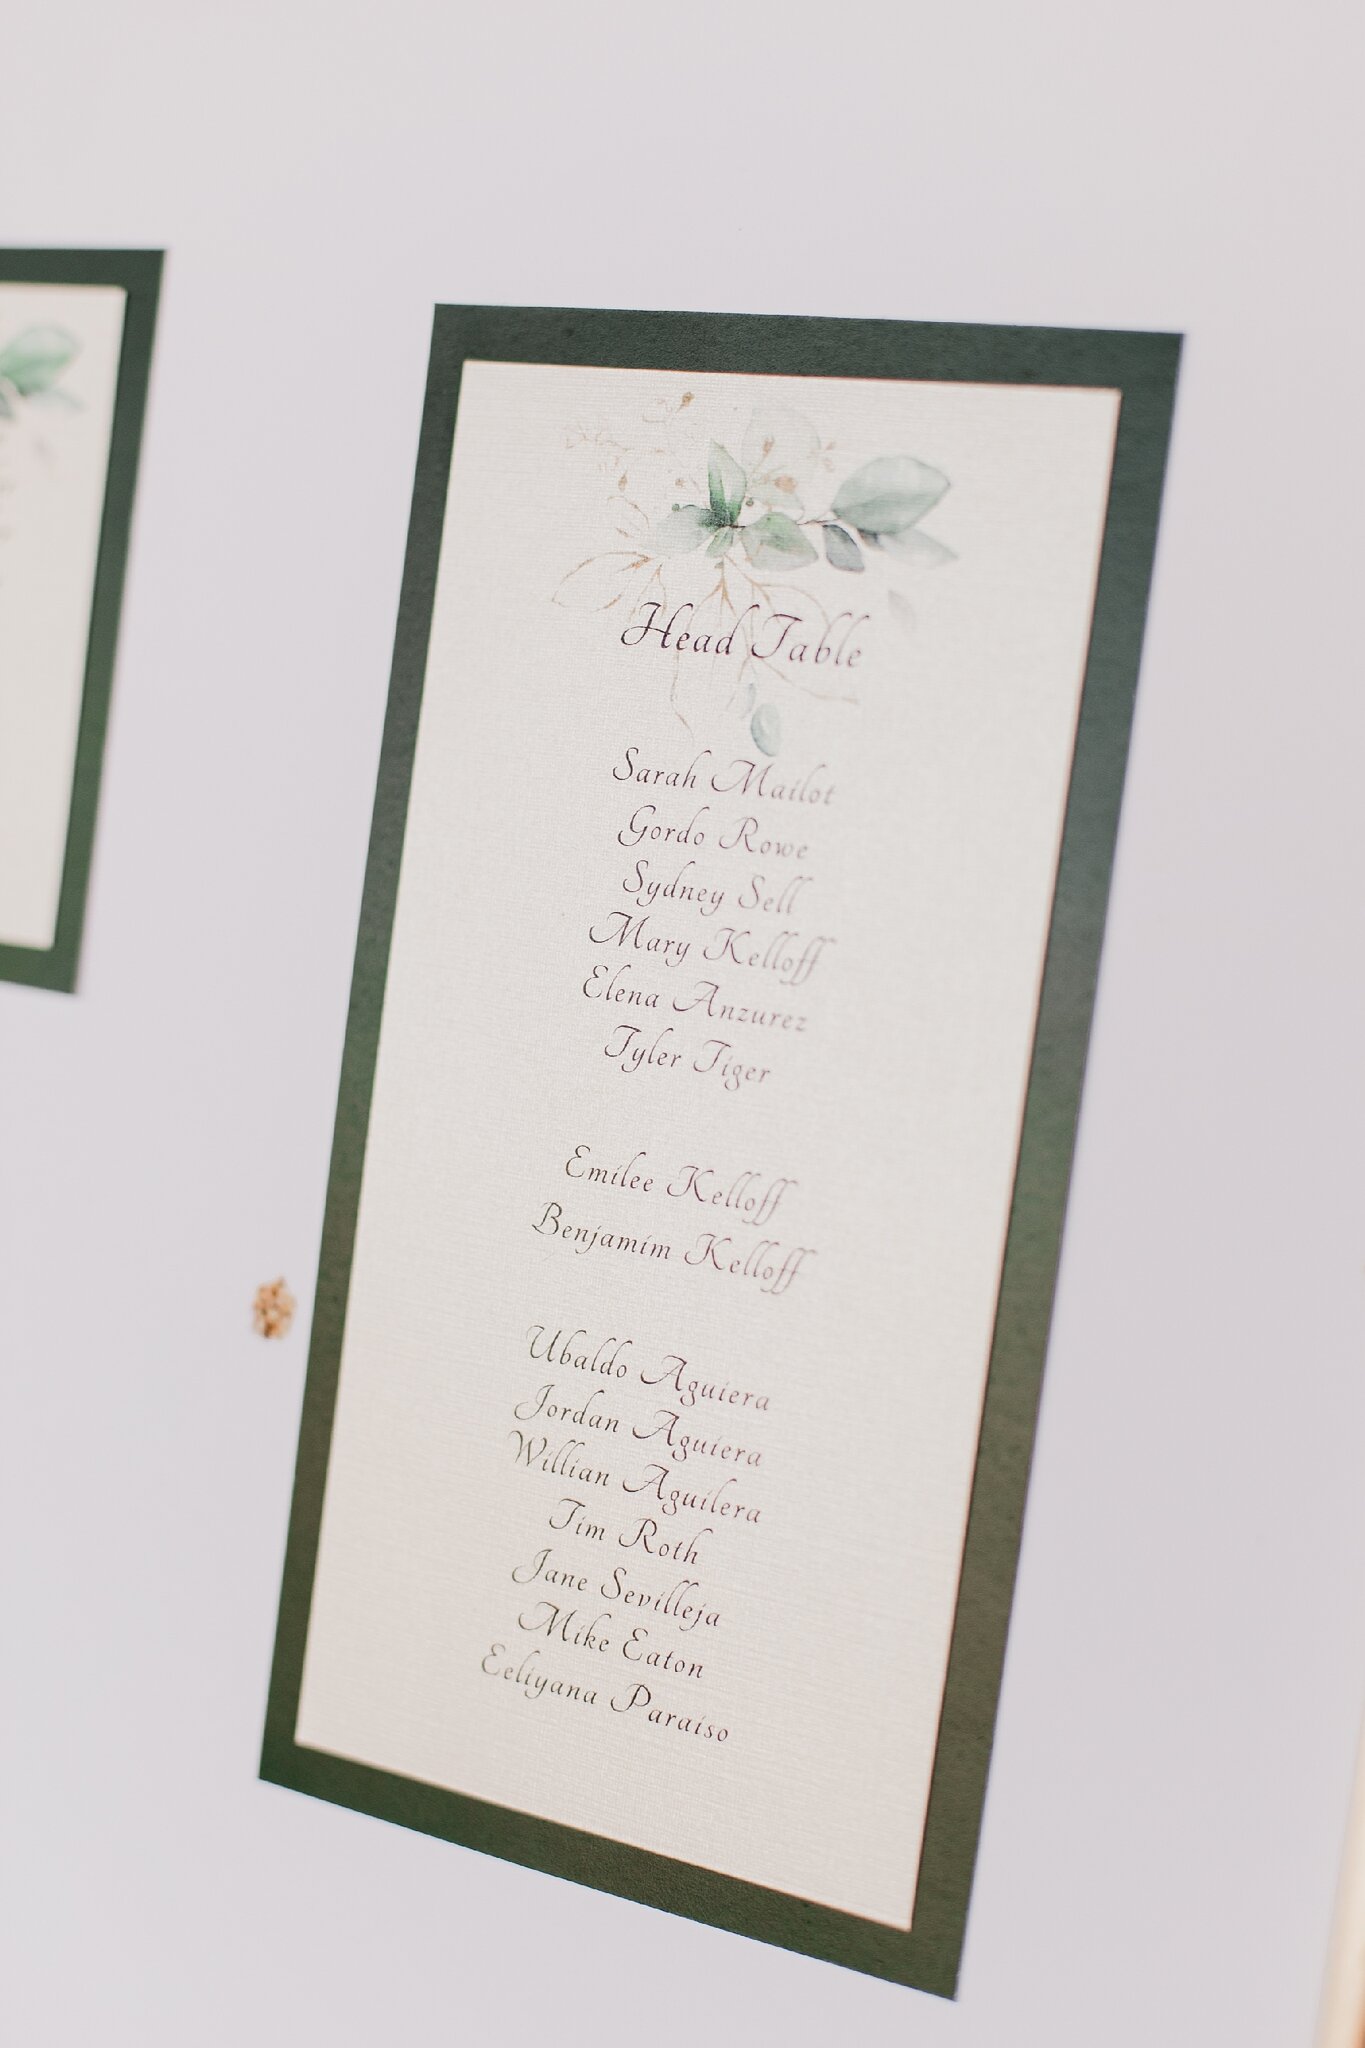 Head Table
Sarah Mailot
Gordo Rowe
Sydney Sell
Mary Kelloff
Elena Anzurez
Tyler Tiger
Emilee Kelloff
Benjamim Kelloff
Ubaldo Aguiera
Jordan Aguiera
Willian Aguilera
Tim Roth
Jane Sevilleja
Mike Eaton
Eeliyana Paraiso